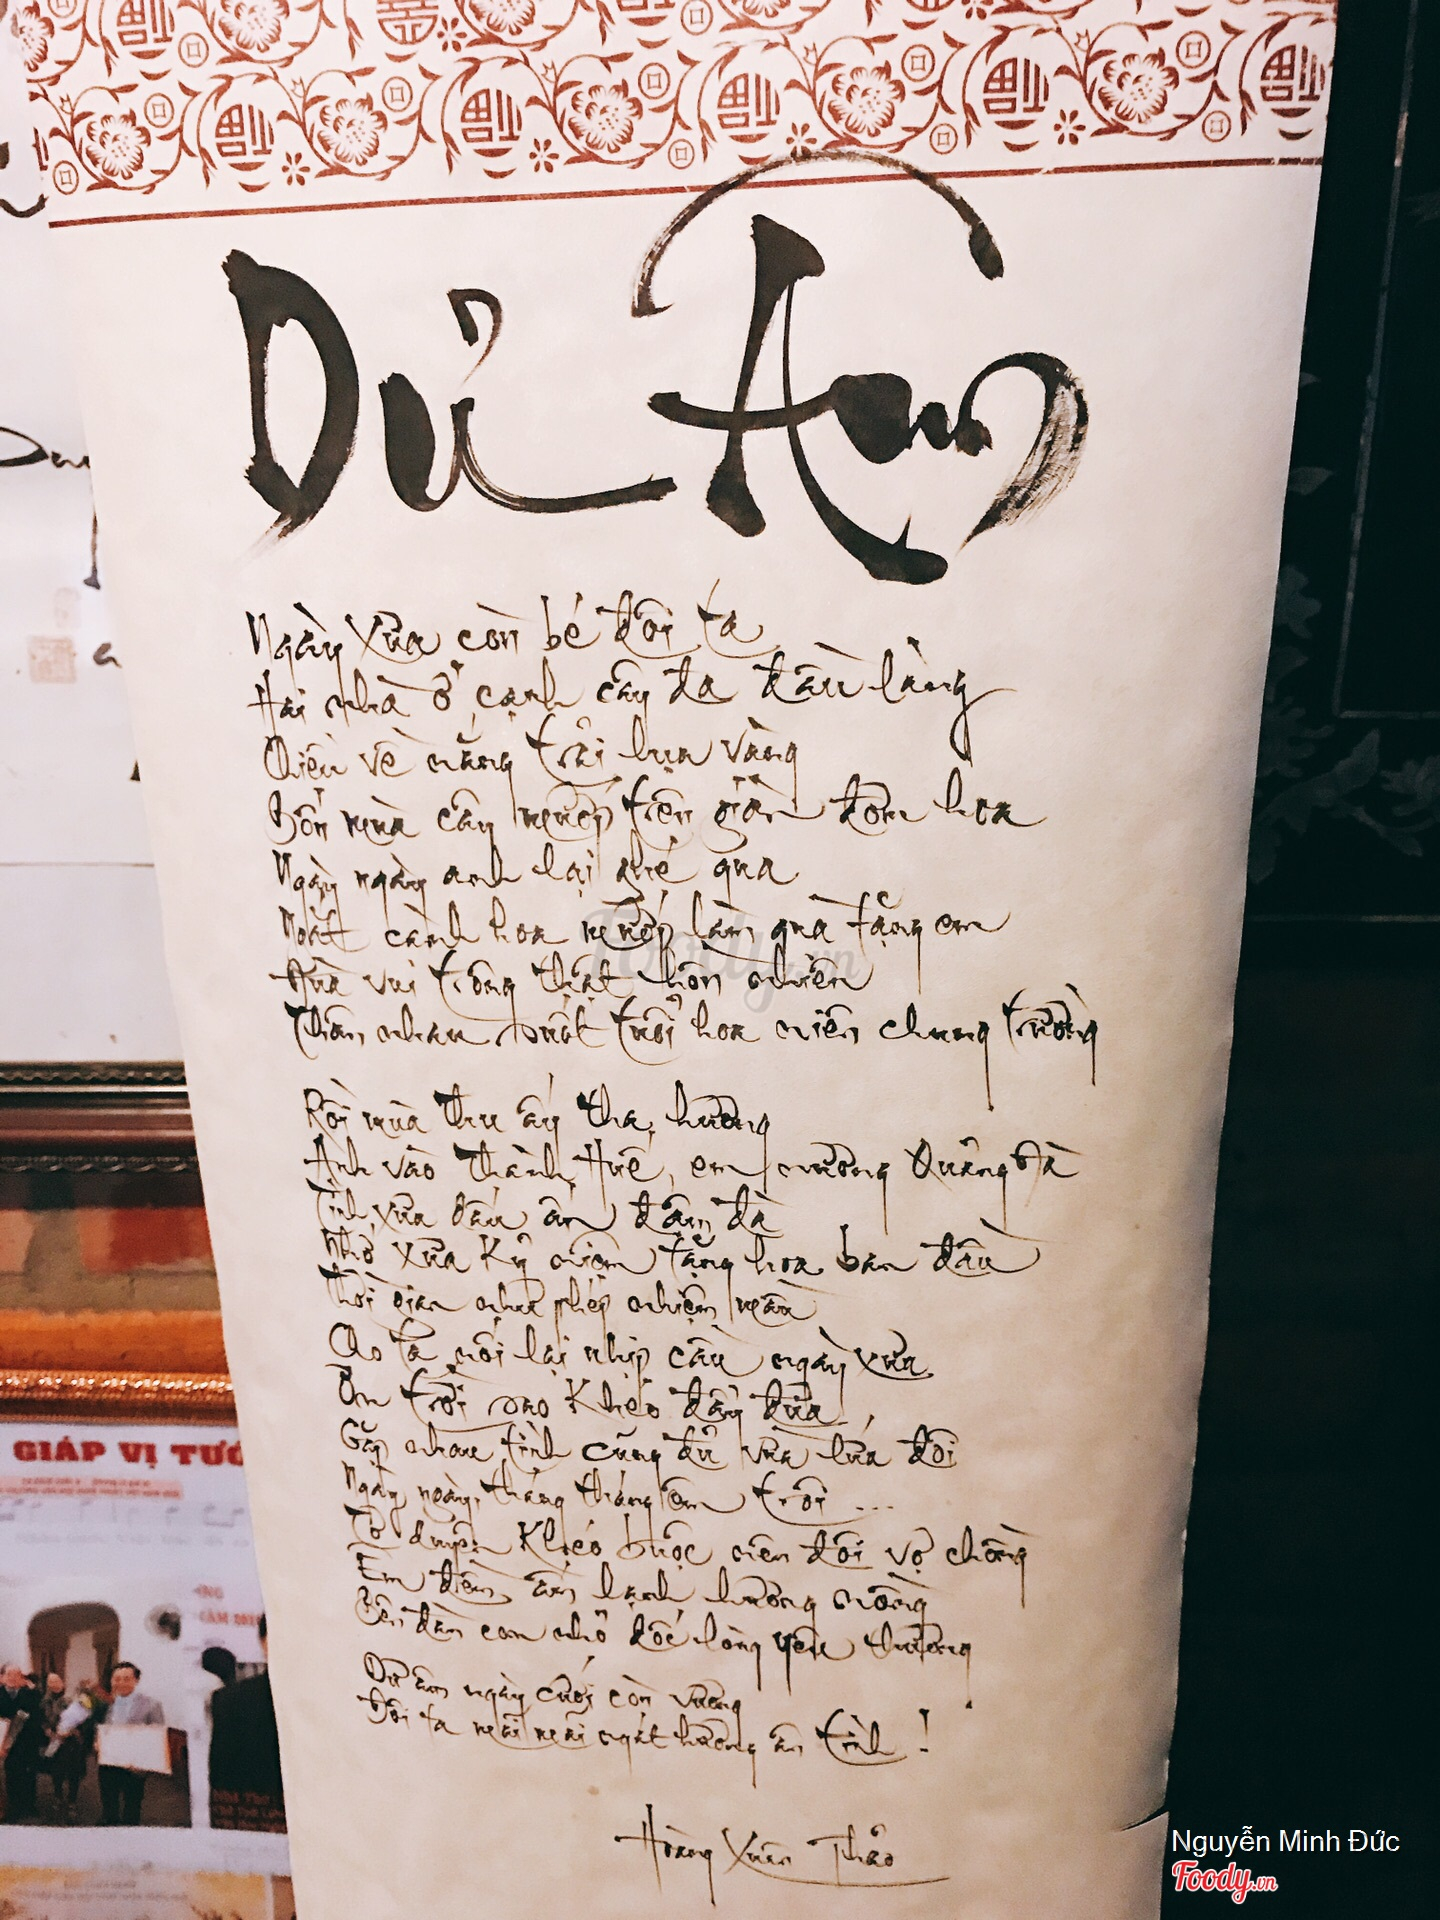 Dư Âm
Ngày xưa còn bé đôi ta
Hai nhà ở cạnh cây đa đầu làng
Chiều về nắng trải lụa vàng
Bốn mùa cây mướp trên giàn đơm hoa
Ngày ngày anh lại ghé qua
Một cành hoa mướp làm quà tặng em
Đùa vui trông thật hồn nhiên
Thân nhau suốt tuổi hoa niên chung trường
Rồi mùa thu ấy tha hương
Anh vào thành Huế, em nương Quảng Hà
Tình xưa dấu ấn đậm đà
Nhớ xưa kỷ niệm tặng hoa ban đầu
Thời gian như phép nhiệm mầu
Cho ta nối lại nhịp cầu ngày xưa
Ơn trời sao khéo đẩy đưa
Gặp nhau tình cũng đủ vừa lứa đôi
Ngày ngày, tháng tháng êm trôi ...
Tơ duyên khéo buộc nên đôi vợ chồng
Êm đềm ấm lạnh hương nồng
Bên đàn con nhỏ dốc lòng yêu thương
Dư âm ngày cưới còn vương
Đôi ta mãi mãi ngát hương ân tình !
Hoàng Xuân Thảo
GIÁP VỊ TƯỚ
Nguyễn Minh Đức
Foody.vn
Foody.vn